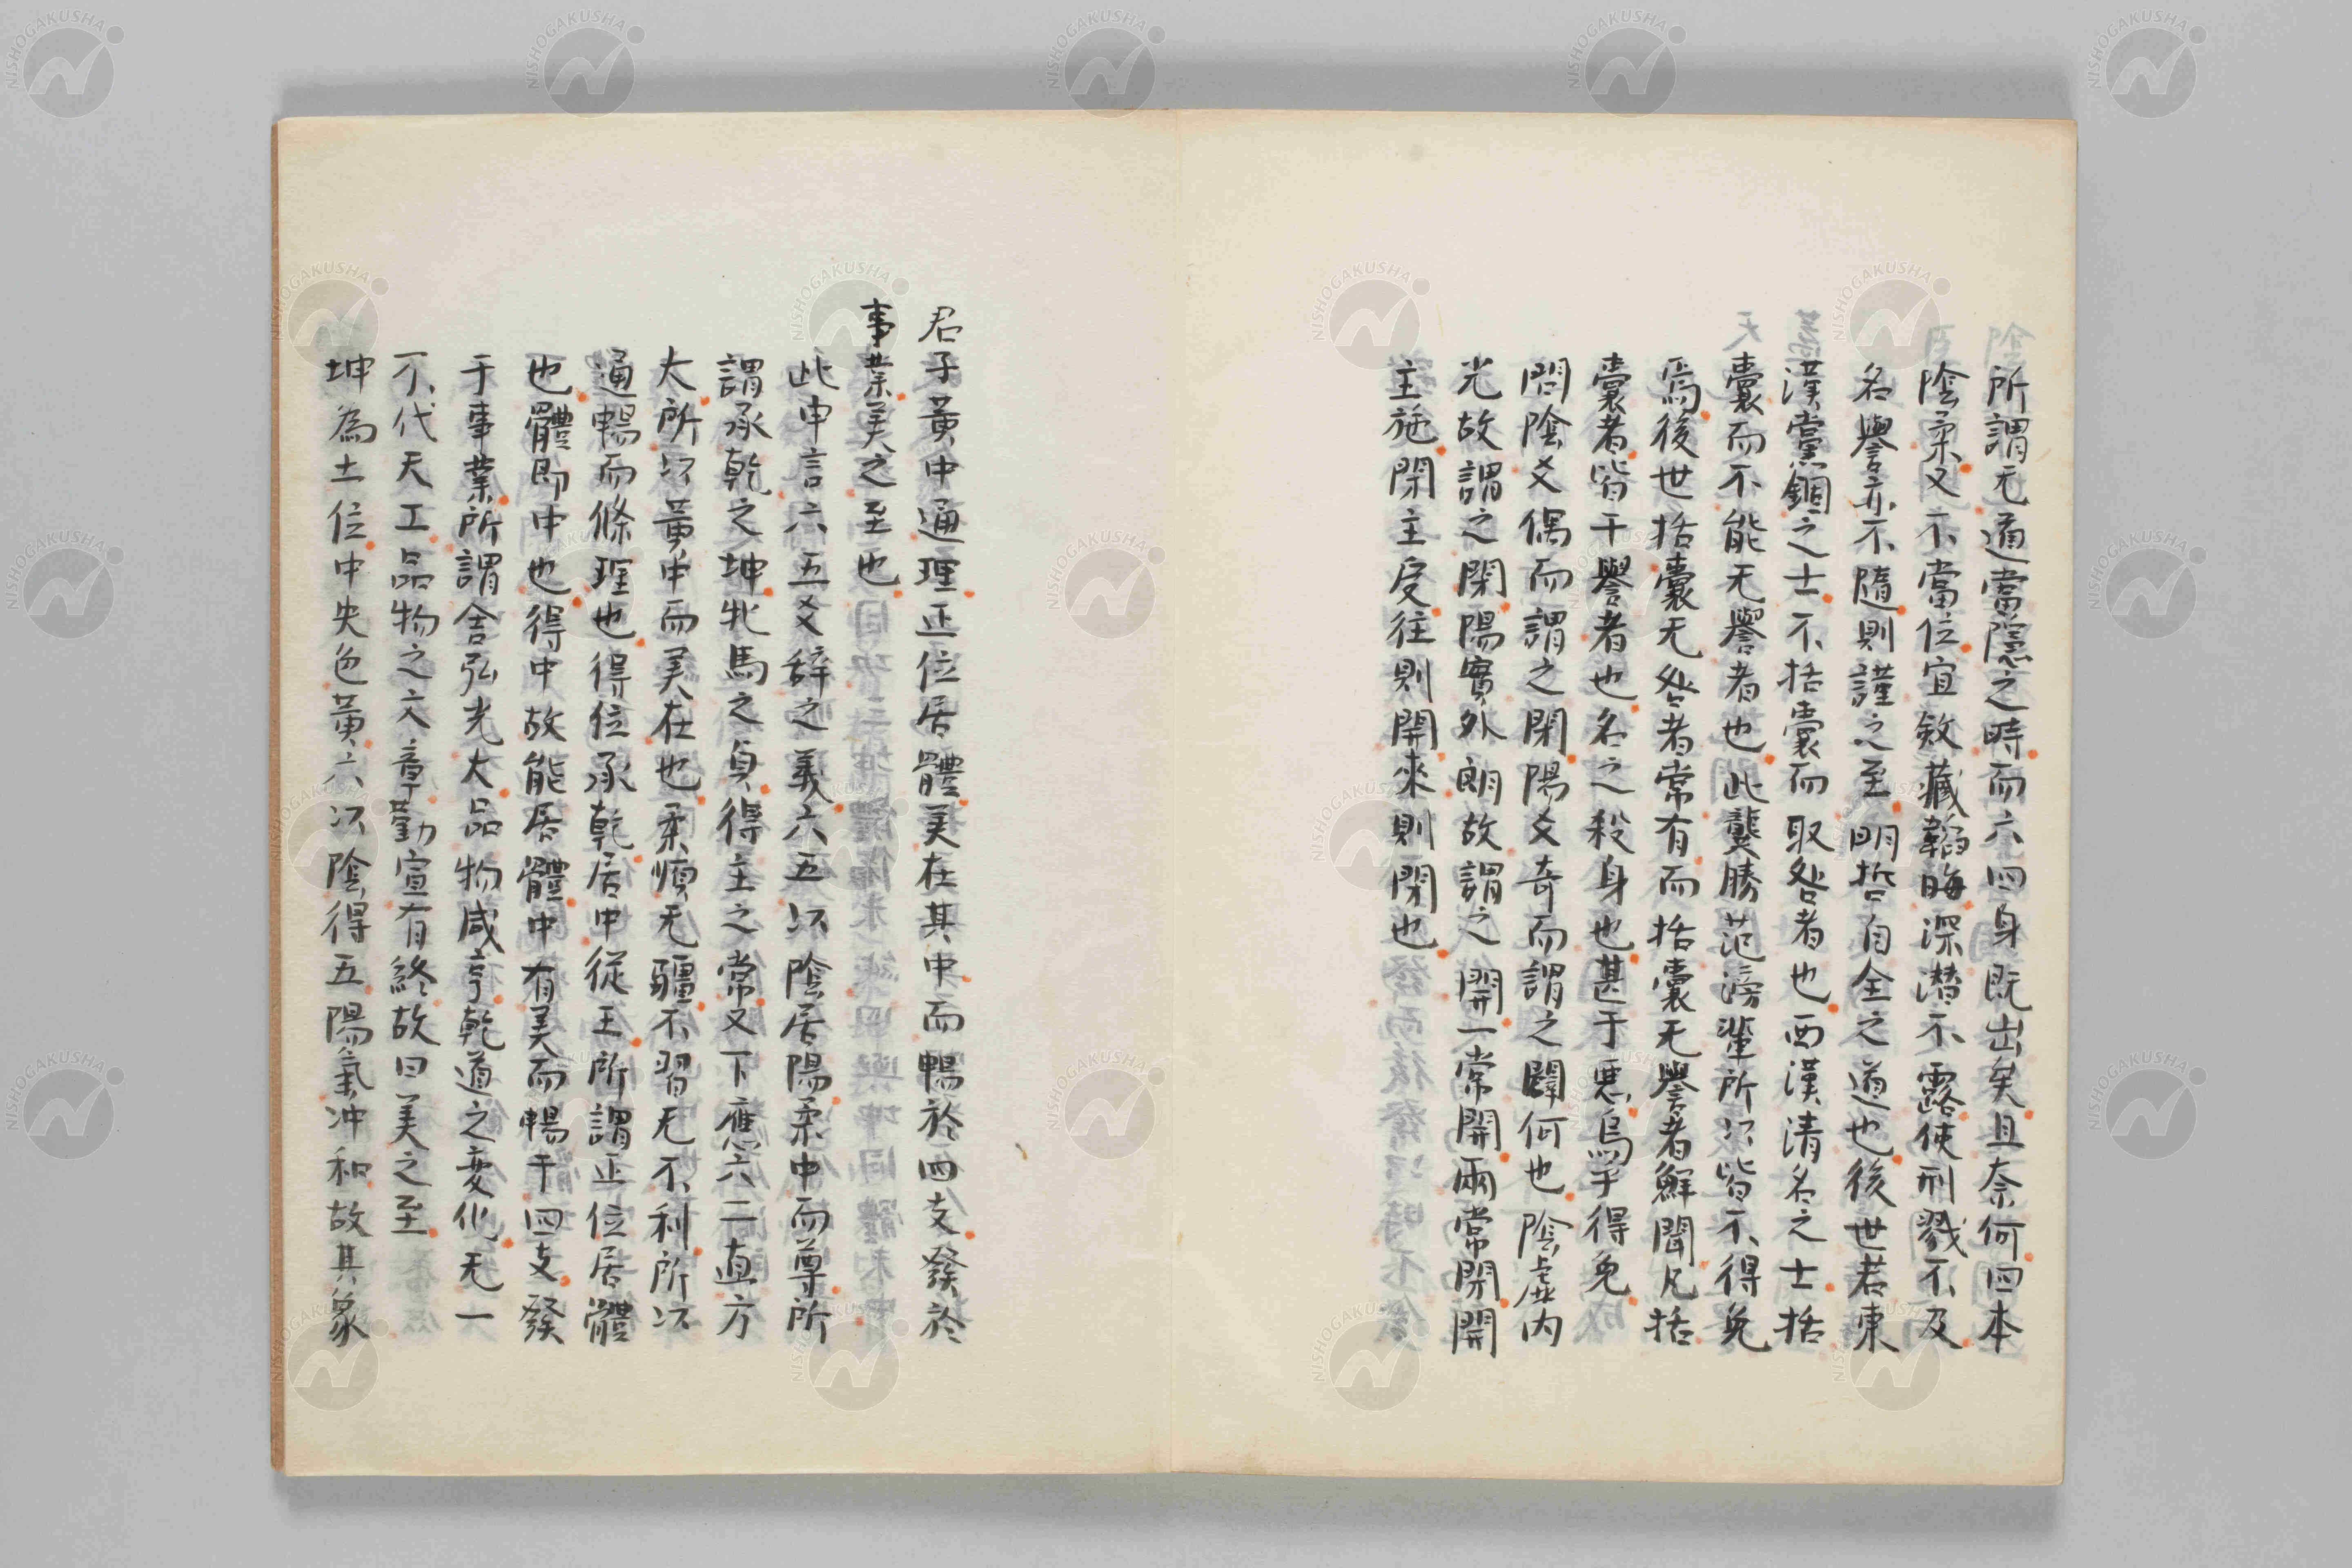 所謂无道當隱之時而六四身既出矣且奈何四本
陰柔又不當位宜斂藏韜晦深潛不露使刑戮不及
名譽亦不隨則謹之至明哲自全之道也後世若東
漢黨錮之士不括囊而取咎者也西漢清名之士括
囊而不能无譽者也此龔勝范滂輩所以皆不得免
焉後世括囊无咎者常有而括囊无譽者鮮聞凡括
囊者皆干譽者也名之殺身也甚于惡烏乎得免
問陰爻偶而謂之閉陽爻奇而謂之闢何也陰虛內
光故謂之閉陽實外朗故謂之開一常開兩常閉開
主施閉主受往則開來則閉也
君子黃中通理正位居體美在其中而暢於四支發於
事業美之至也
此申言六五爻辭之義六五以陰居陽柔中而尊所
謂承乾之坤牝馬之貞得主之常又下應六二直方
大所以黃中而美在也柔順无疆不習无不利所以
通暢而條理也得位承乾居中從王所謂正位居體
也體即中也得中故能居體中有美而暢于四支發
于事業所謂含弘光大品物咸亨乾道之変化无一
不代天工品物之文章勤宣有終故曰美之至
坤為土位中央色黃六以陰得五陽氣冲和故其象
NISHOGAKUSHA